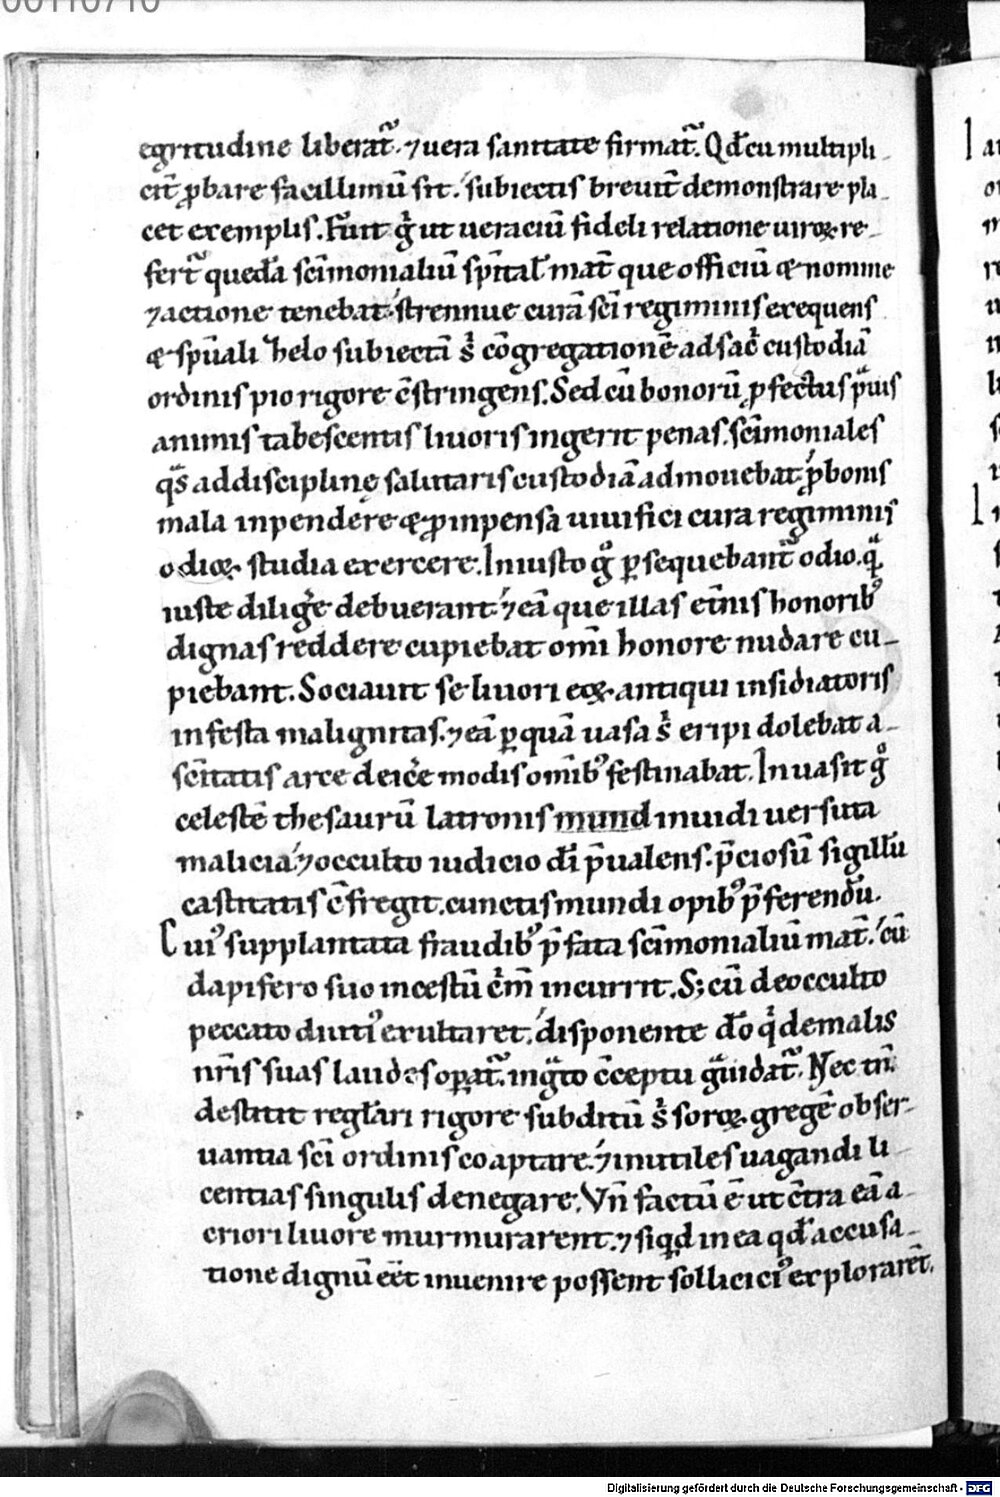 00110710
egritudine liberat᷑. ⁊ uera sanitate firmat᷑. Qd̄ cu multipli-
cit̄ ꝓbare facillimū sit. subiectis breuit̄ demonstrare pla-
cet exemplis. Fuit gͥ ut ueraciū fideli relatione uiroꝝ re-
fert᷑ quedā sc̄imonialiū sp̄ital' mat̄ que officiū ⁊ nomine
⁊ actione tenebat. strennue curā sc̄i regiminis exequens
⁊ sp̄uali zhelo subiectā sͥ cōgregationē ad sac̄ custodiā
ordinis pio rigore c̄stringens. Sed cū bonorū ꝓfectus pͣuis
animis tabescentis liuoris ingerit penas. sc̄imoniales
qͣs ad discipline salutaris custodiā admouebat. ꝓ bonis
mala inpendere ⁊ ꝓ inpensa uiuifici cura regiminis
odioꝝ studia exercere. Iniusto gͦ ꝑsequebant᷑ odio. qͣ
iuste diliḡe debuerant. ⁊ eā que illas et̄nis honoribꝰ
dignas reddere cupiebat om̄i honore nudare cu-
piebant. Sociauit se liuori eoꝝ antiqui insidiatoris
infesta malignitas. ⁊ eā ꝑ quā uasa sͥ eripi dolebat a-
sc̄itatis arce deic̄e modis om̄ibꝰ festinabat. Inuasit gͦ
celestē thesaurū latronis mund inuidi uersuta
malicia. ⁊ occulto iudicio dī p̄ualens. p̄ciosū sigillū
castitatis c̄fregit. cunctis mundi opibꝰ p̄ferendū.
Cuiꝰ supplantata fraudibꝰ p̄fata sc̄imonialiū mat̄. cū
dapifero suo incestū cͥm̄ incurrit. S; cū de occulto
peccato diutiꝰ exultaret. disponente dō qͥ de malis
nr̄is suas laudes oꝑat᷑. ingͣto c̄ceptu gͣuidat᷑. Nec tn̄
destitit reglari rigore subditū sͥ soroꝝ gregē obser-
uantia sc̄i ordinis coaptare. ⁊ inutiles uagandi li-
centias singulis denegare. Vn̄ factū ē ut c̄tra eā a-
criori liuore murmurarent. ⁊ siqͥd in ea qd̄ accusa-
tione dignū eēt inuenire possent sollicicꝰ explorarēt.
Digitalisierung gefördert durch die Deutsche Forschungsgemeinschaft - DFG